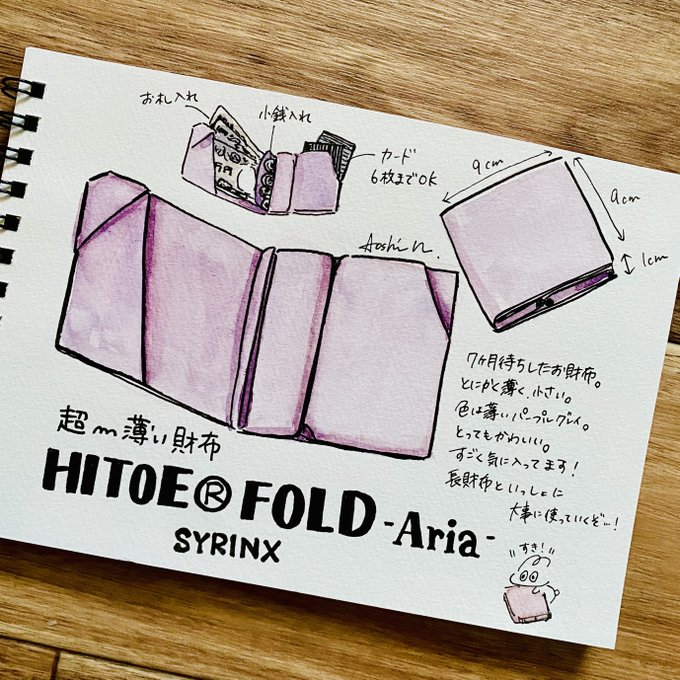 お札入れ
小銭入れ
カード
6枚までOK
9cm
9cm
1cm
Aoshi n.
7ヶ月待ちしたお財布。
とにかく薄く、小さい。
色は薄いパープルグレイ。
とってもかわいい。
すごく気に入ってます!
長財布といっしょに
大事に使っていくぞ…!
超〜薄い財布
HITOE® FOLD -Aria-
SYRINX
"すき!"